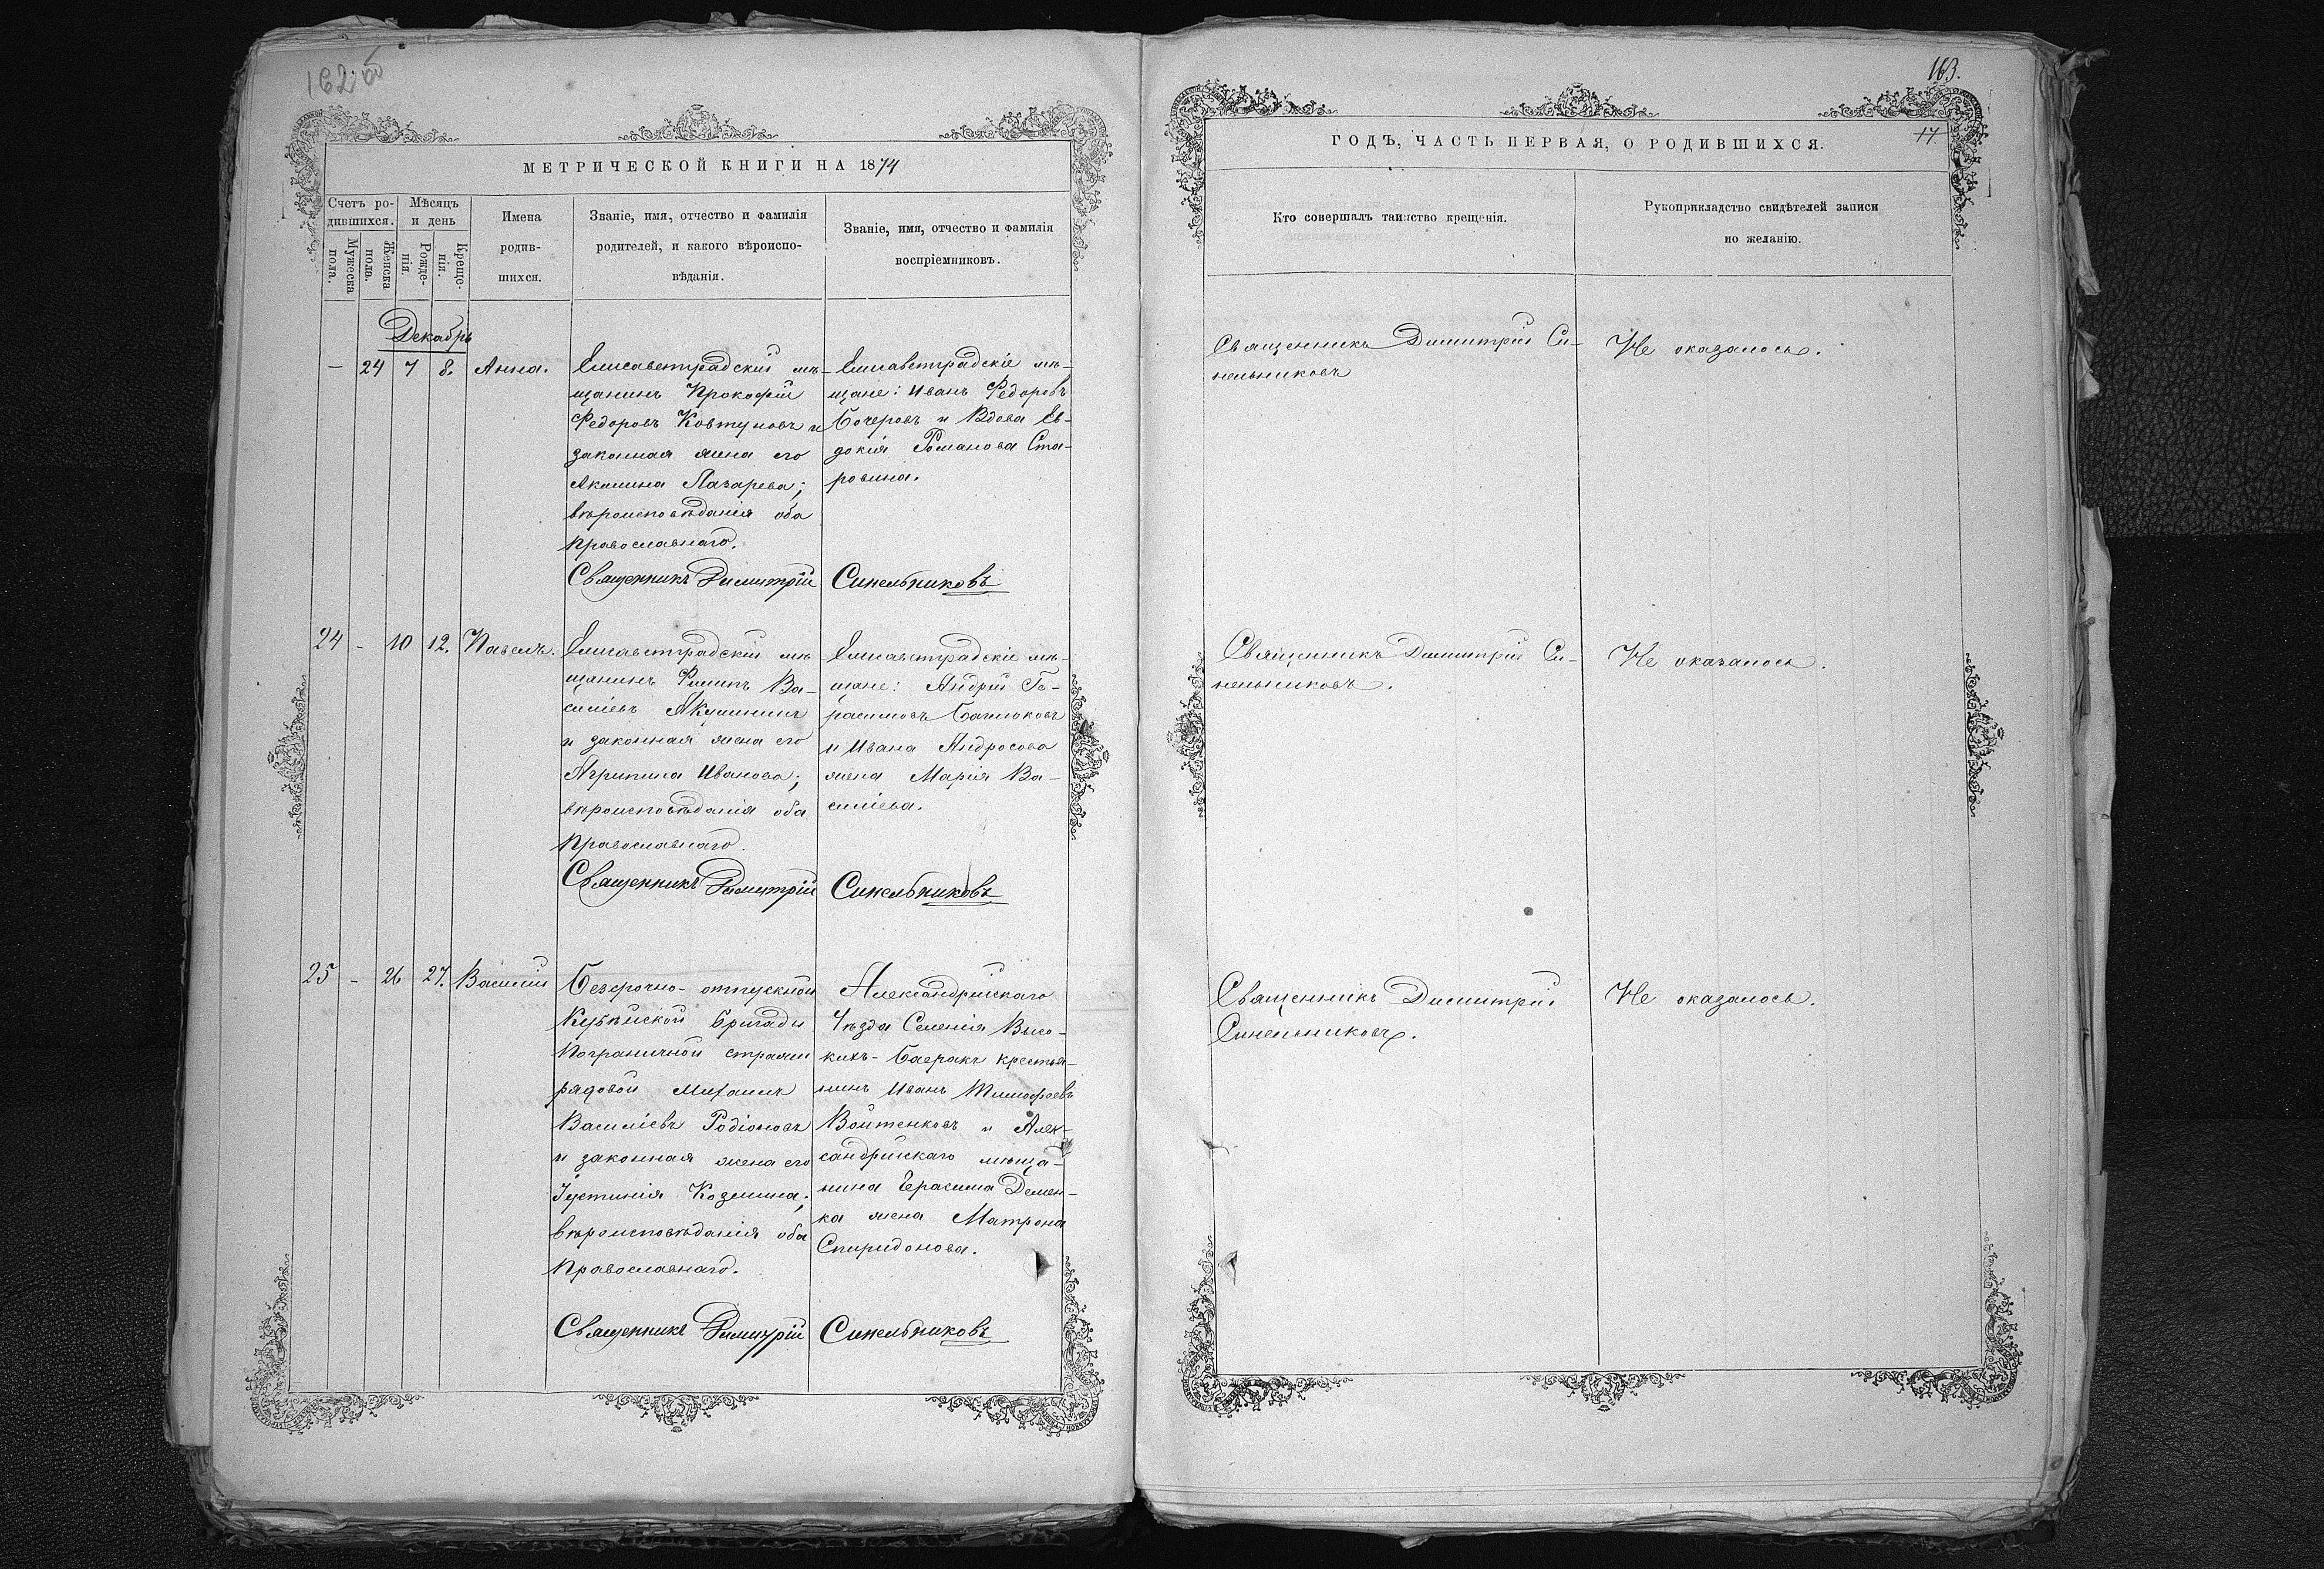 162 об
МЕТРИЧЕСКОЙ КНИГИ НА 1874
Счетъ ро-
дившихся.
Мужеска
пола.
Женска
пола.
Мѣсяцъ
и день
Рожде-
нія.
Креще-
нія.
Имена
родив-
шихся.
Званіе, имя, отчество и фамилія
родителей, и какого вѣроиспо-
вѣданія.
Званіе, имя, отчество и фамилія
воспріемниковъ.
Декабрь
— 24 7 8. Анна.
Елисаветградскій мѣ-
щанинъ Прокофій
Федоровъ Ковтуновъ и
законная жена его
Акилина Лазарева;
вѣроисповѣданія оба
православнаго.
Елисаветградскіе мѣ-
щане: Иванъ Федоровъ
Бочеровъ и Вдова Ев-
докія Романова Ста-
ровина.
Священникъ Димитрій Синельниковъ
24 - 10 12. Павелъ.
Елисаветградскій мѣ
щанинъ Филипъ Ва-
силіевъ Акулинин
и законная жена его
Агрипина Иванова;
вѣроисповѣданія оба
православнаго.
Елисаветградскіе мѣ-
щане: Андрій Ге-
расимовъ
и Ивана Андросова
жена Марія Ва-
силіева.
Священникъ Димитрій Синельниковъ
25 - 26 27. Василій
Безсрочно-отпускной
бригады
Пограничной стражи
рядовой Михаилъ
Василіевъ Родіоновъ
и законная жена его
Іустинія Козмина;
вѣроисповѣданія оба
православнаго.
Александрійскаго
Уѣзда Селенія Высо-
кихъ-Баеракъ крестья-
нинъ Иванъ Тимофеевъ
Войтенковъ и Алек-
сандрійскаго мѣща-
нина Герасима Демен-
ка жена Матрона
Спиридонова.
Священникъ Димитрій Синельниковъ
163.
17.
ГОДЪ, ЧАСТЬ ПЕРВАЯ, О РОДИВШИХСЯ.
Кто совершалъ таинство крещенія.
Рукоприкладство свидѣтелей записи
по желанію.
Священникъ Димитрій Си-
нельниковъ
Не оказалось.
Священникъ Димитрій Си-
нельниковъ.
Не оказалось.
Священникъ Димитрій
Синельниковъ.
Не оказалось.